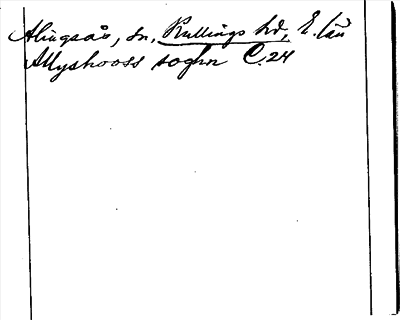 Alingsås, sn, Kullings hd, E. län
Allyshooss soghn C. 24